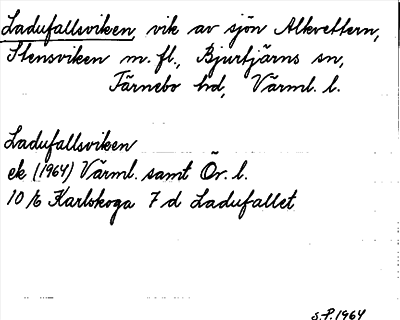 Ladufallsviken, vik av sjön Alkvettern,
Stensviken m. fl., Bjurtjärns sn,
Färnebo hd, Värml. l.
Ladufallsviken
ek (1964) Värml. samt Ör. l.
10 E Karlskoga 7 d Ladufallet
S.P. 1964